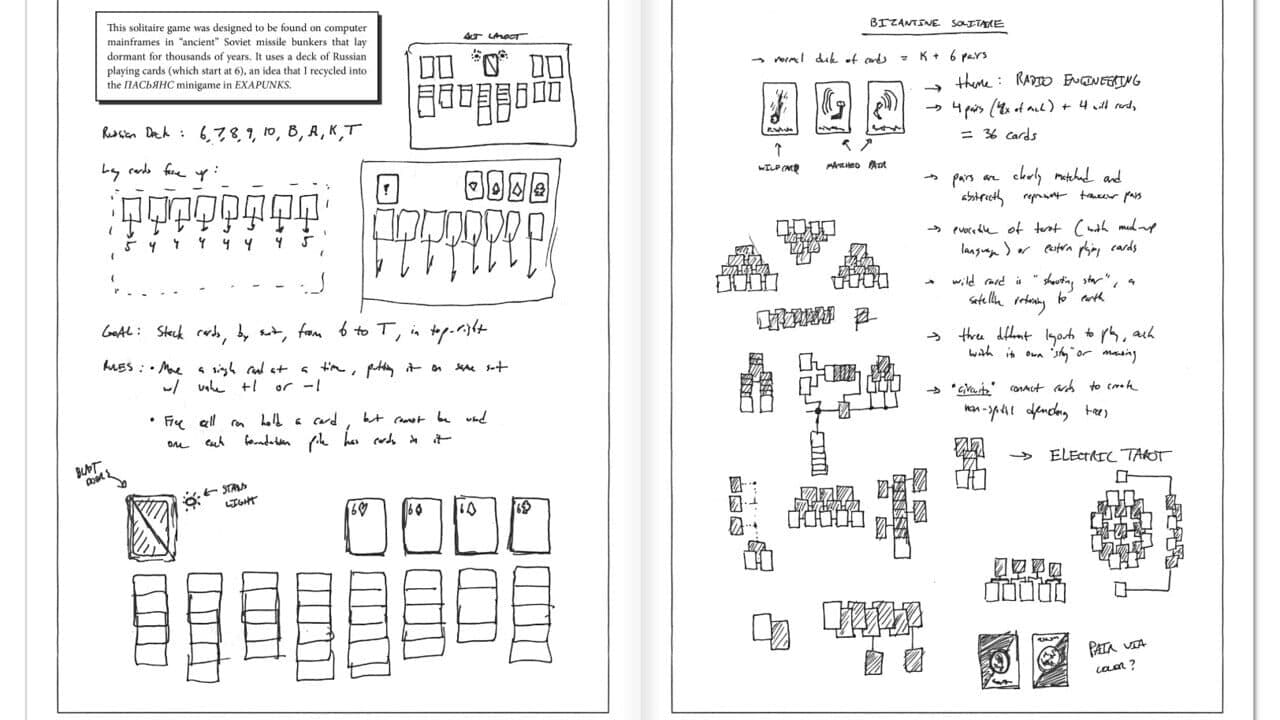 This solitaire game was designed to be found on computer
mainframes in “ancient” Soviet missile bunkers that lay
dormant for thousands of years. It uses a deck of Russian
playing cards (which start at 6), an idea that I recycled into
the ПАСЬЯНС minigame in EXAPUNKS.
ALT LAYOUT
Russian Deck : 6, 7, 8, 9, 10, B, A, K, T
Lay cards face up :
5 4 4 4 4 4 4 5
GOAL : Stack cards, by suit, from 6 to T, in top-right
RULES : • Move a single card at a time, putting it on same suit
w/ value +1 or -1
• Free cell can hold a card, but cannot be used
once each foundation pile has cards in it
BLAST
DOORS
STATUS
LIGHT
6 6 6 6
BIZANTINE SOLITAIRE
→ normal deck of cards = K + 6 pairs
→ theme : RADIO ENGINEERING
→ 4 pairs (4x of each) + 4 wild cards
= 36 cards
WILDCARD
MATCHED PAIR
→ pairs are clearly matched and
abstractly represent transceiver pairs
→ evocative of tarot (with made-up
language) or eastern playing cards
→ wild card is "shooting star", a
satellite returning to earth
→ three different layouts to play, each
with its own "story" or meaning
→ "circuits" connect cards to create
non-spatial depending trees
→ ELECTRIC TAROT
PAIR VIA
COLOR?